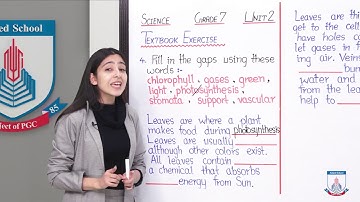 ed School
85
ject of PGC
SCIENCE GRADE 7 UNIT 2
TEXTBOOK EXERCISE
4. Fill in the gaps using these
words :-
chlorophyll, gases, green,
light, photosynthesis,
stomata, support, vascular
Leaves are where a plant
makes food during photosynthesis
Leaves are usually
although other colors exist.
All leaves contain
a chemical that absorbs
energy from Sun.
Leaves are thin
get to the cell
have holes ca
let gases in
ing air. Veins
bun
water and
from the lea
help to